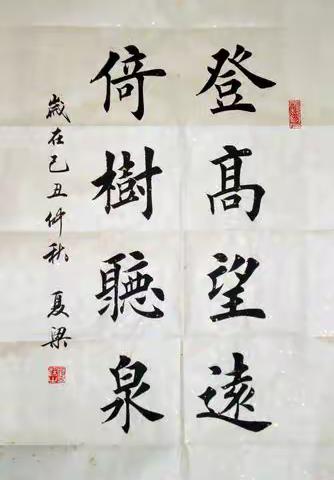 登高望遠
倚樹聽泉
歲在己丑仲秋 夏梁